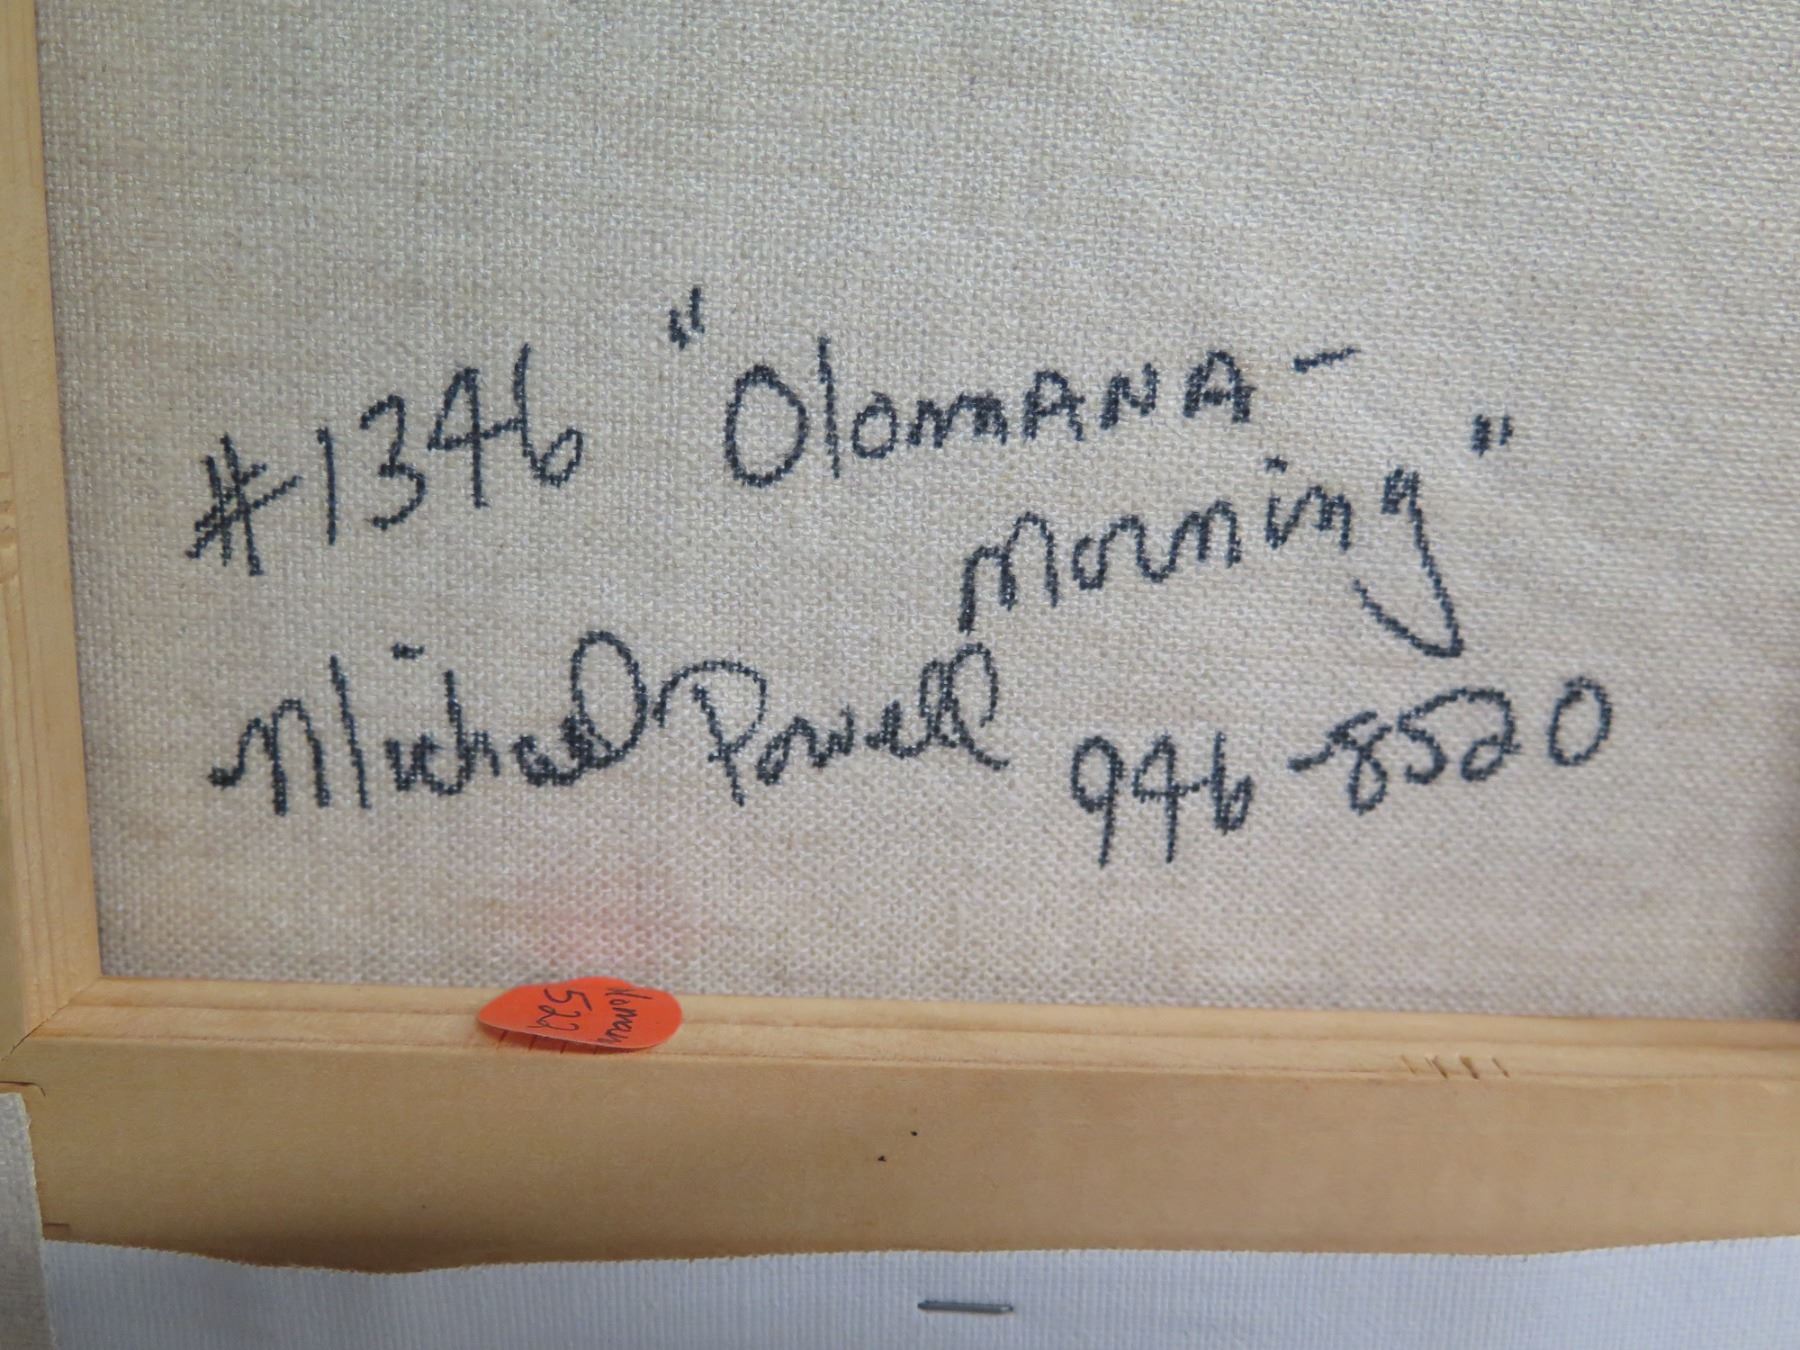 #1346 "OlomANA -
Morning"
Michael Powell 946-8520
522